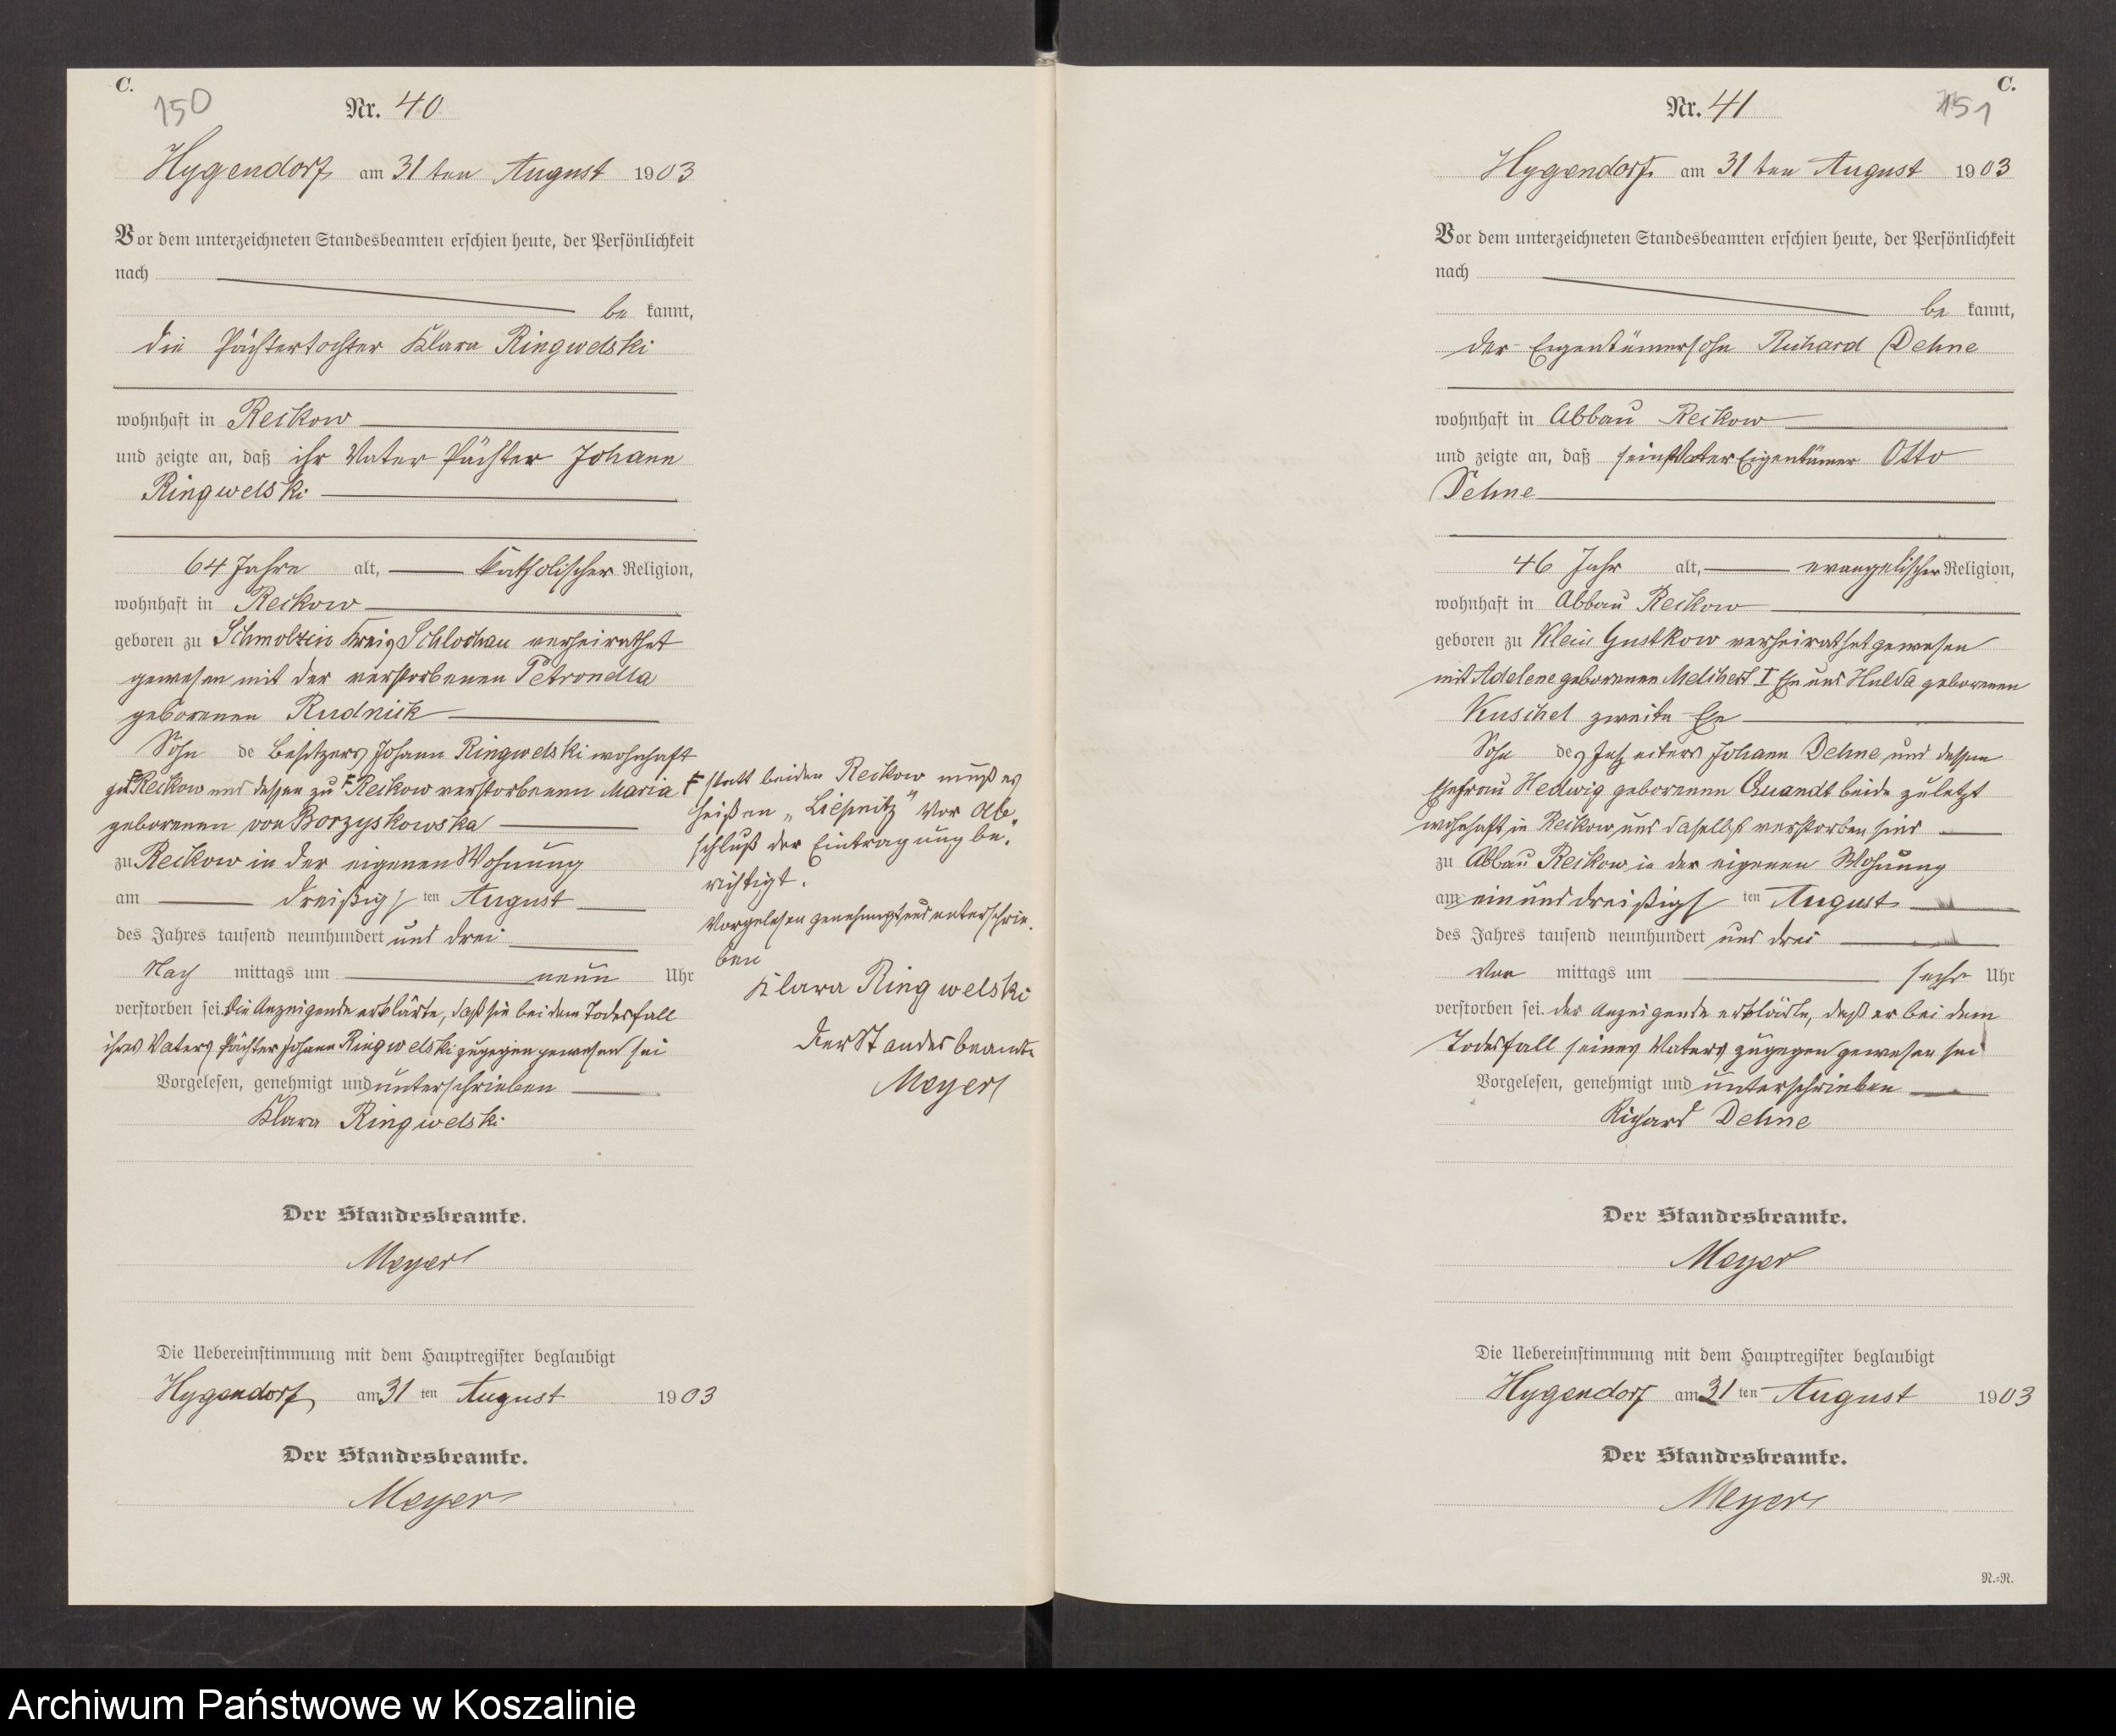 C.
150
Nr. 40
Hygendorf am 31 ten August 1903
Vor dem unterzeichneten Standesbeamten erschien heute, der Persönlichkeit
nach
be kannt,
die Pächtertochter Klara Ringwelski
wohnhaft in Reckow
und zeigte an, daß ihr Vater Pächter Johann
Ringwelski
64 Jahre alt, katholischer Religion,
wohnhaft in Reckow
geboren zu Schmolzin Kreis Schlochau verheirathet
gewesen mit der verstorbenen Petronella
geborenen Rudnick
Sohn de Besitzers Johann Ringwelski wohnhaft
zu Reckow und dessen zu Reckow verstorbenen Maria
geborenen von Borzyskowska
zu Reckow in der eigenen Wohnung
am dreißigs ten August
des Jahres tausend neunhundert und drei
Nach mittags um neun Uhr
verstorben sei. Die Anzeigende erklärte, daß sie bei dem Todesfall
ihres Vaters Pächter Johann Ringwelski zugegen gewesen sei
Vorgelesen, genehmigt und unterschrieben
Klara Ringwelski
Der Standesbeamte.
Meyer
Die Uebereinstimmung mit dem Hauptregister beglaubigt
Hygendorf am 31 ten August 1903
Der Standesbeamte.
Meyer
statt beiden Reckow muß es
heißen „Liepnitz" Vor Ab-
schluß der Eintragung be-
richtigt.
Vorgelesen genehmigt und unterschrie-
ben
Klara Ringwelski
Der Standesbeamte
Meyer
C.
151
Nr. 41
Hygendorf am 31 ten August 1903
Vor dem unterzeichneten Standesbeamten erschien heute, der Persönlichkeit
nach
be kannt,
der Eigentümersohn Richard Dehne
wohnhaft in Abbau Reckow
und zeigte an, daß sein Vater Eigentümer Otto
Dehne
46 Jahr alt, evangelischer Religion,
wohnhaft in Abbau Reckow
geboren zu Klein Gustkow verheirathet gewesen
mit Adelene geborenen Melchert I Ehe und Hulda geborenen
Kuschel zweite Ehe
Sohn des Johann Dehne und dessen
Ehefrau Hedwig geborenen Quandt beide zuletzt
wohnhaft in Reckow und daselbst verstorben sind
zu Abbau Reckow in der eigenen Wohnung
am einunddreißigs ten August
des Jahres tausend neunhundert und drei
Vor mittags um sechs Uhr
verstorben sei. der Anzeigende erklärte, daß er bei dem
Todesfall seines Vaters zugegen gewesen sei
Vorgelesen, genehmigt und unterschrieben
Richard Dehne
Der Standesbeamte.
Meyer
Die Uebereinstimmung mit dem Hauptregister beglaubigt
Hygendorf am 31 ten August 1903
Der Standesbeamte.
Meyer
N.=N.
Archiwum Państwowe w Koszalinie